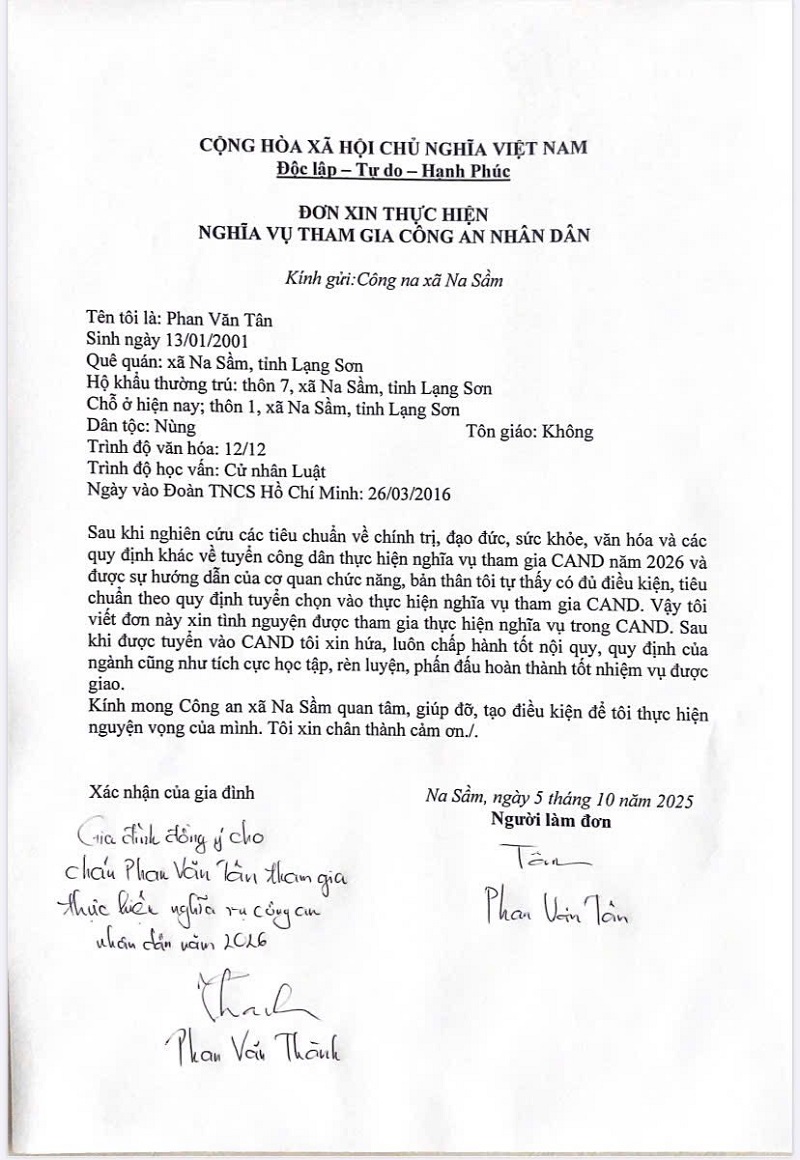 CỘNG HÒA XÃ HỘI CHỦ NGHĨA VIỆT NAM
Độc lập – Tự do – Hạnh Phúc
ĐƠN XIN THỰC HIỆN
NGHĨA VỤ THAM GIA CÔNG AN NHÂN DÂN
Kính gửi:Công na xã Na Sầm
Tên tôi là: Phan Văn Tân
Sinh ngày 13/01/2001
Quê quán: xã Na Sầm, tỉnh Lạng Sơn
Hộ khẩu thường trú: thôn 7, xã Na Sầm, tỉnh Lạng Sơn
Chỗ ở hiện nay; thôn 1, xã Na Sầm, tỉnh Lạng Sơn
Dân tộc: Nùng Tôn giáo: Không
Trình độ văn hóa: 12/12
Trình độ học vấn: Cử nhân Luật
Ngày vào Đoàn TNCS Hồ Chí Minh: 26/03/2016
Sau khi nghiên cứu các tiêu chuẩn về chính trị, đạo đức, sức khỏe, văn hóa và các
quy định khác về tuyển công dân thực hiện nghĩa vụ tham gia CAND năm 2026 và
được sự hướng dẫn của cơ quan chức năng, bản thân tôi tự thấy có đủ điều kiện, tiêu
chuẩn theo quy định tuyển chọn vào thực hiện nghĩa vụ tham gia CAND. Vậy tôi
viết đơn này xin tình nguyện được tham gia thực hiện nghĩa vụ trong CAND. Sau
khi được tuyển vào CAND tôi xin hứa, luôn chấp hành tốt nội quy, quy định của
ngành cũng như tích cực học tập, rèn luyện, phấn đấu hoàn thành tốt nhiệm vụ được
giao.
Kính mong Công an xã Na Sầm quan tâm, giúp đỡ, tạo điều kiện để tôi thực hiện
nguyện vọng của mình. Tôi xin chân thành cảm ơn./.
Xác nhận của gia đình
Gia đình đồng ý cho
cháu Phan Văn Tân tham gia
thực hiện nghĩa vụ công an
nhân dân năm 2026
Thành
Phan Văn Thành
Na Sầm, ngày 5 tháng 10 năm 2025
Người làm đơn
Tân
Phan Văn Tân